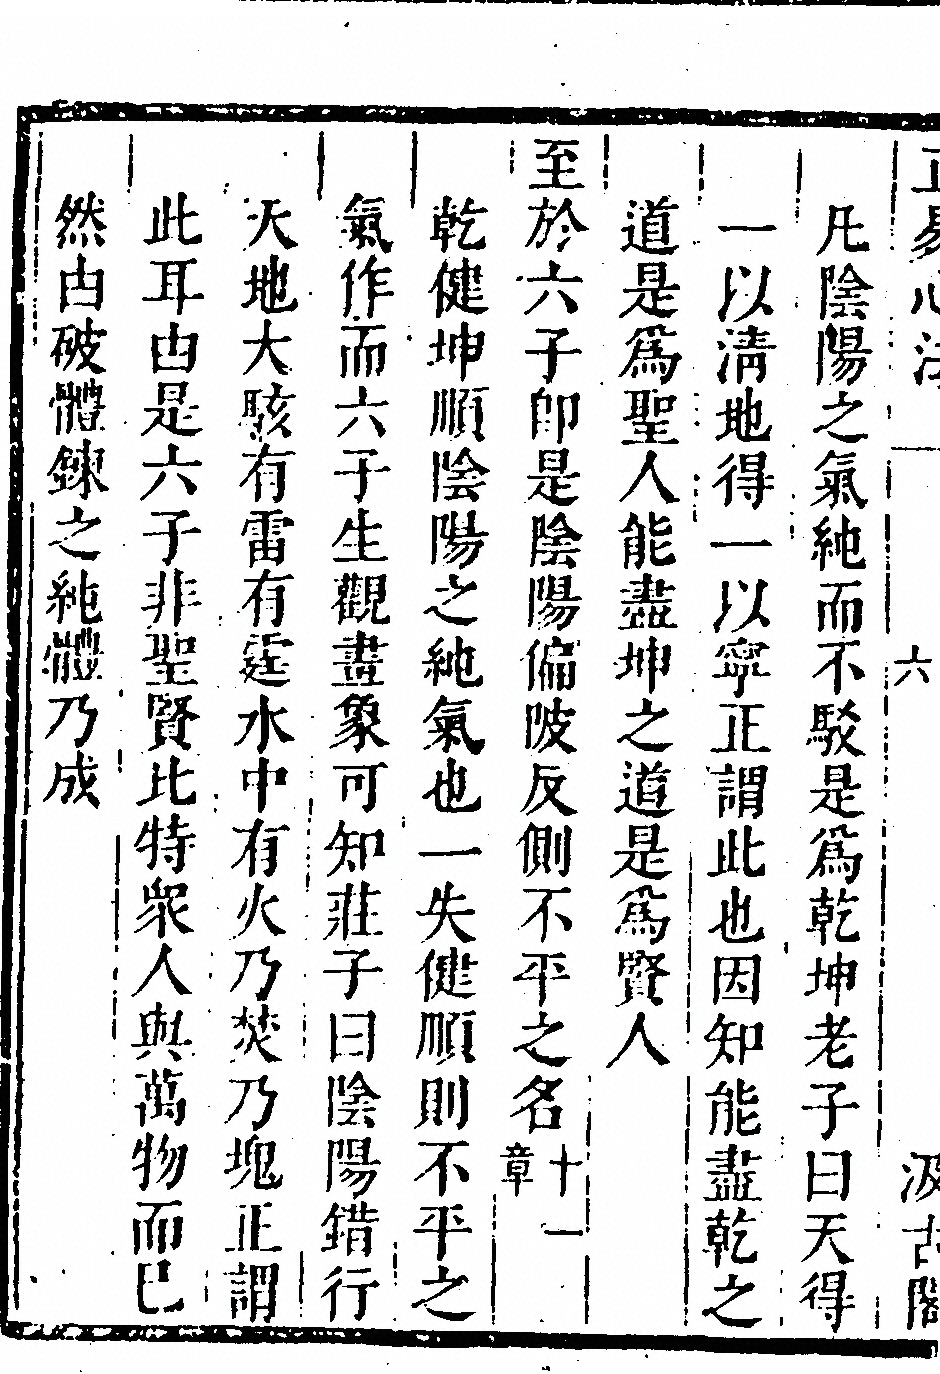 正易心法 六 汲古閣
凡陰陽之氣純而不駁是爲乾坤老子曰天得
一以清地得一以寧正謂此也因知能盡乾之
道是爲聖人能盡坤之道是爲賢人
至於六子卽是陰陽偏陂反側不平之名十一章
乾健坤順陰陽之純氣也一失健順則不平之
氣作而六子生觀畫象可知莊子曰陰陽錯行
天地大駭有雷有霆水中有火乃焚乃塊正謂
此耳由是六子非聖賢比特衆人與萬物而巳
然由破體鍊之純體乃成